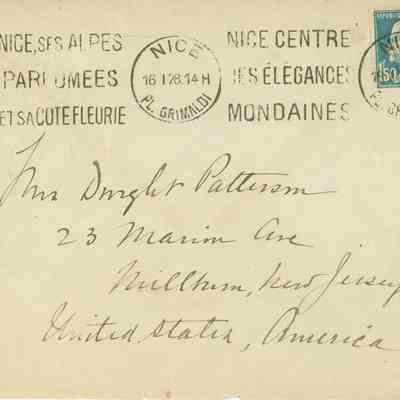 NICE, SES ALPES
PARFUMEES
ET SA COTE FLEURIE
NICE
16 I 28.14H
PL. GRIMALDI
NICE CENTRE
DES ÉLÉGANCES
MONDAINES
1F50
Mrs Dwight Patterson
23 Marion Ave
Millburn, New Jersey
United States, America